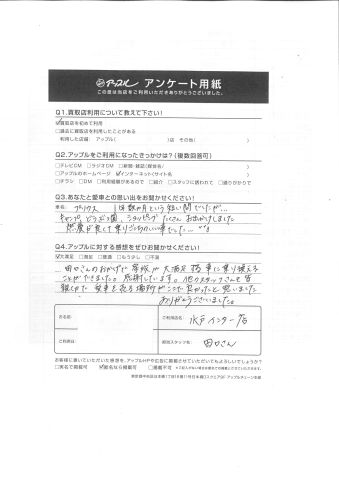 アップル アンケート用紙
この度は当店をご利用いただきありがとうございました。
Q1.買取店利用について教えて下さい!
☑買取店を初めて利用
□過去に買取店を利用したことがある
利用した店舗: アップル( )店 その他( )
Q2.アップルをご利用になったきっかけは?(複数回答可)
□テレビCM □ラジオCM □新聞・雑誌(媒体名/ )
□アップルのホームページ ☑インターネット(サイト名 )
□チラシ □DM □利用経験があるので □紹介 □スタッフに誘われて □通りがかりで
Q3.あなたと愛車との思い出をお聞かせください!
車名: プリウス 1年数か月という短い間でしたが…
キャンプ、どうぶつ園、ショッピング たくさんお出かけしました
燃費が良くて乗りごこちのいい車でした…
Q4.アップルに対する感想をぜひお聞かせください!
☑大満足 □満足 □普通 □もう少し □不満
田口さんのおかげで 家族が大満足する車に乗り換える
ことができました。感謝しています。他のスタッフさんも皆
親切で 愛車を売る場所がここで良かったと思いました
ありがとうございました。
お名前:
ご利用店名: 水戸インター店
ご利用日:
担当スタッフ名: 田口さん
お客様に書いていただいた感想を、アップルHPや広告に掲載させていただいてもよろしいでしょうか?
□実名で掲載可 ☑匿名なら掲載可 □掲載不可